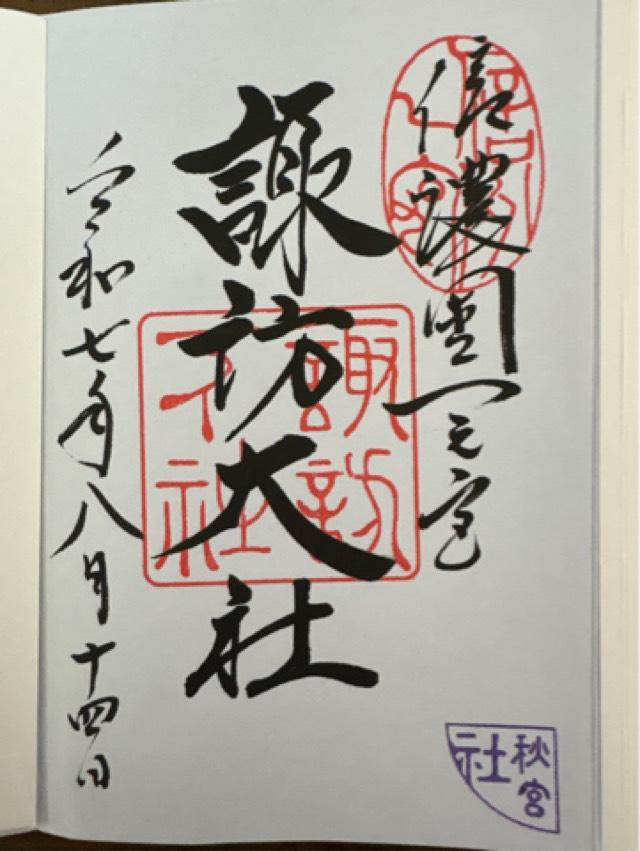 信濃國一之宮
諏訪大社
令和七年八月十四日
諏訪
下社
秋宮
社